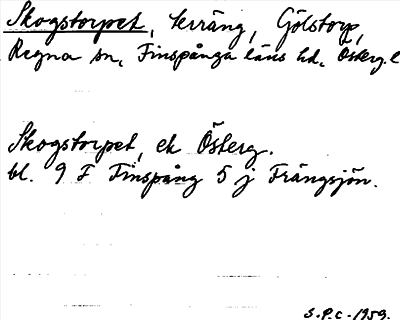 Skogstorpet, terräng, Gölstorp,
Regna sn, Finspånga läns hd, Österg. l
Skogstorpet, ek Österg.
bl. 9 F Finspång 5 j Frängsjön.
S.P.C. 1959.